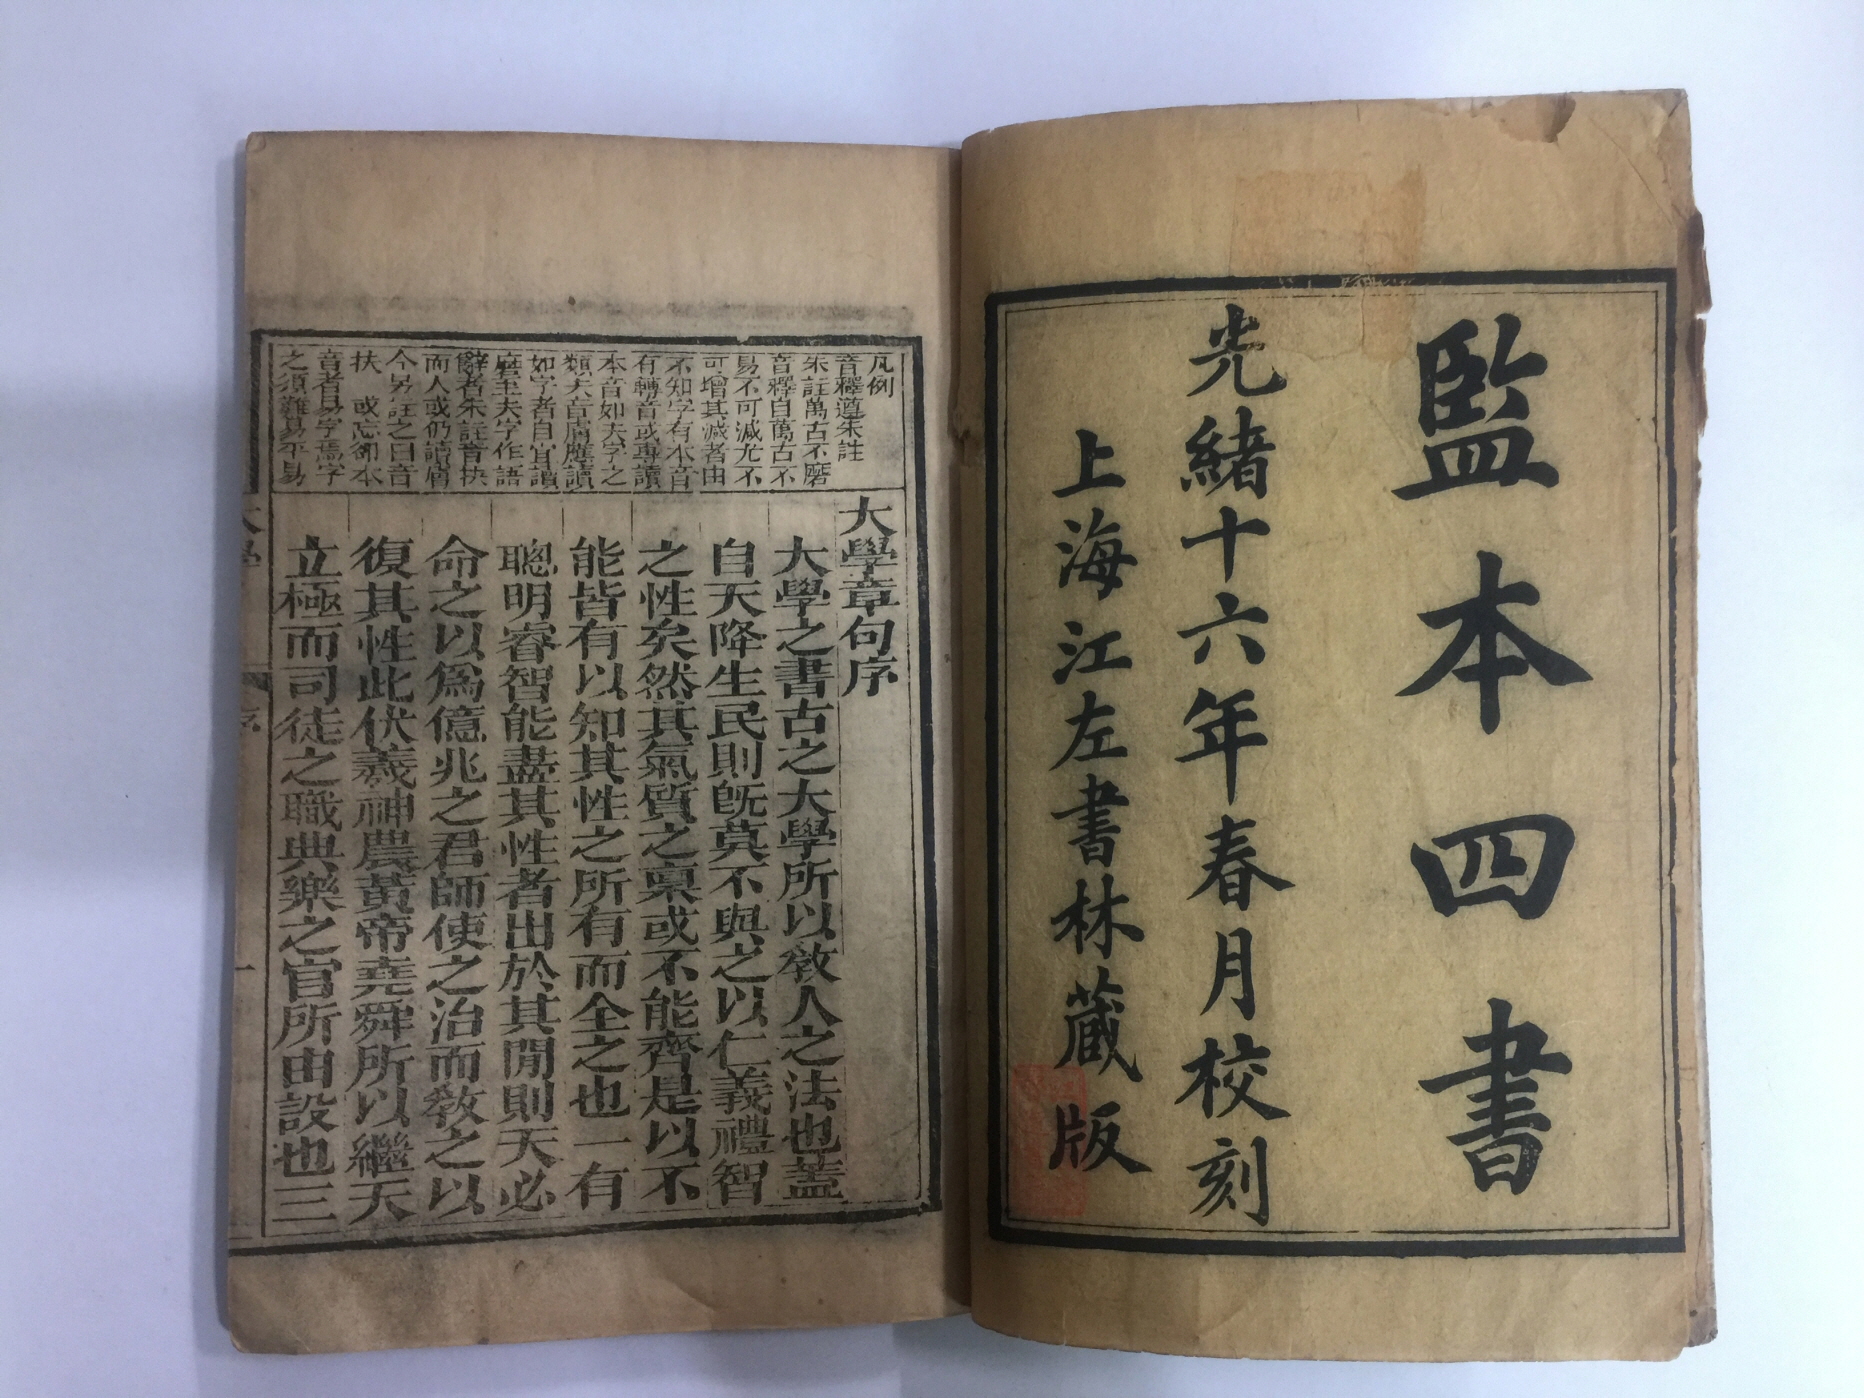 監本四書
光緒十六年春月校刻
上海江左書林蔵版
凡例
音釋遵朱註
朱註萬古不磨
音釋自萬古不
易不可減尤不
可增其減者由
不知字有本音
有轉音或專讀
本音如夫字之
類夫音膚應讀
如字者自宜讀
麼至夫字作語
辭者朱註音扶
而人或仍讀膚
今另註之曰音
扶 或忘卻本
音者易字焉字
之須難易平易
大學章句序
大學之書古之大學所以敎人之法也蓋
自天降生民則旣莫不與之以仁義禮智
之性矣然其氣質之稟或不能齊是以不
能皆有以知其性之所有而全之也一有
聰明睿智能盡其性者出於其閒則天必
命之以爲億兆之君師使之治而敎之以
復其性此伏羲神農黃帝堯舜所以繼天
立極而司徒之職典樂之官所由設也三